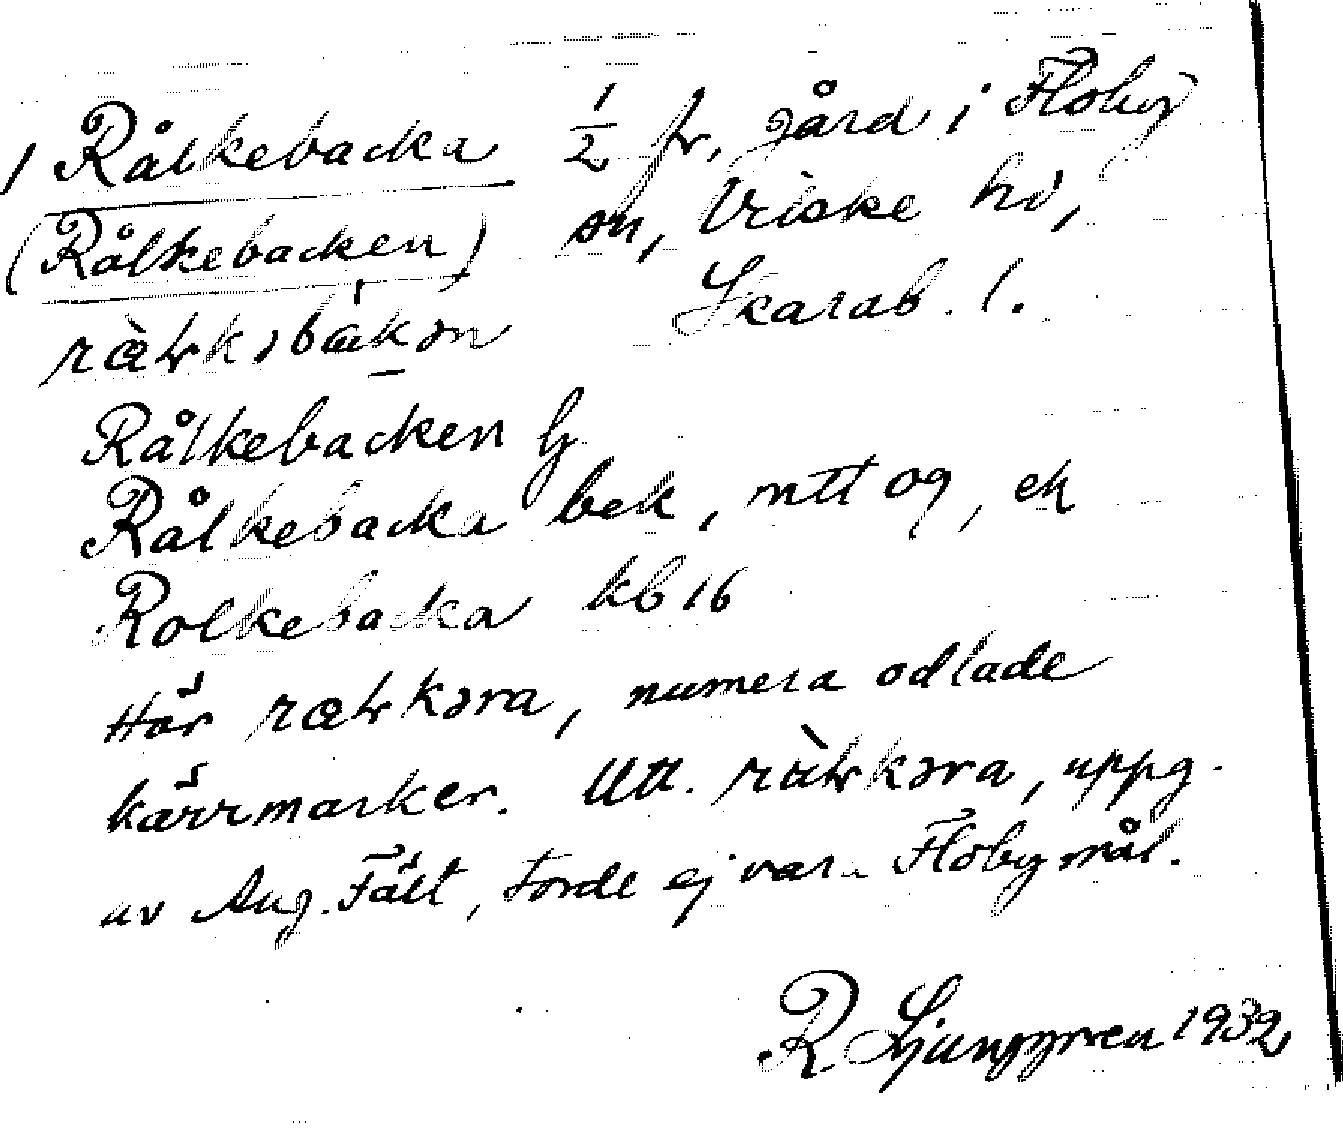 1 Rålkebacka 1/2 fr, gård i Floby
(Rålkebacken) sn, Vriske hd,
Skarab. l.
Rålkebacken G
Rålkebacka bek, mtt og, ek
Rolkebacka kb 16
Här numera odlade
kärrmarker. Utt. uppg.
av Aug. Fält, torde ej vara Flobymål.
R. Ljunggren 1932